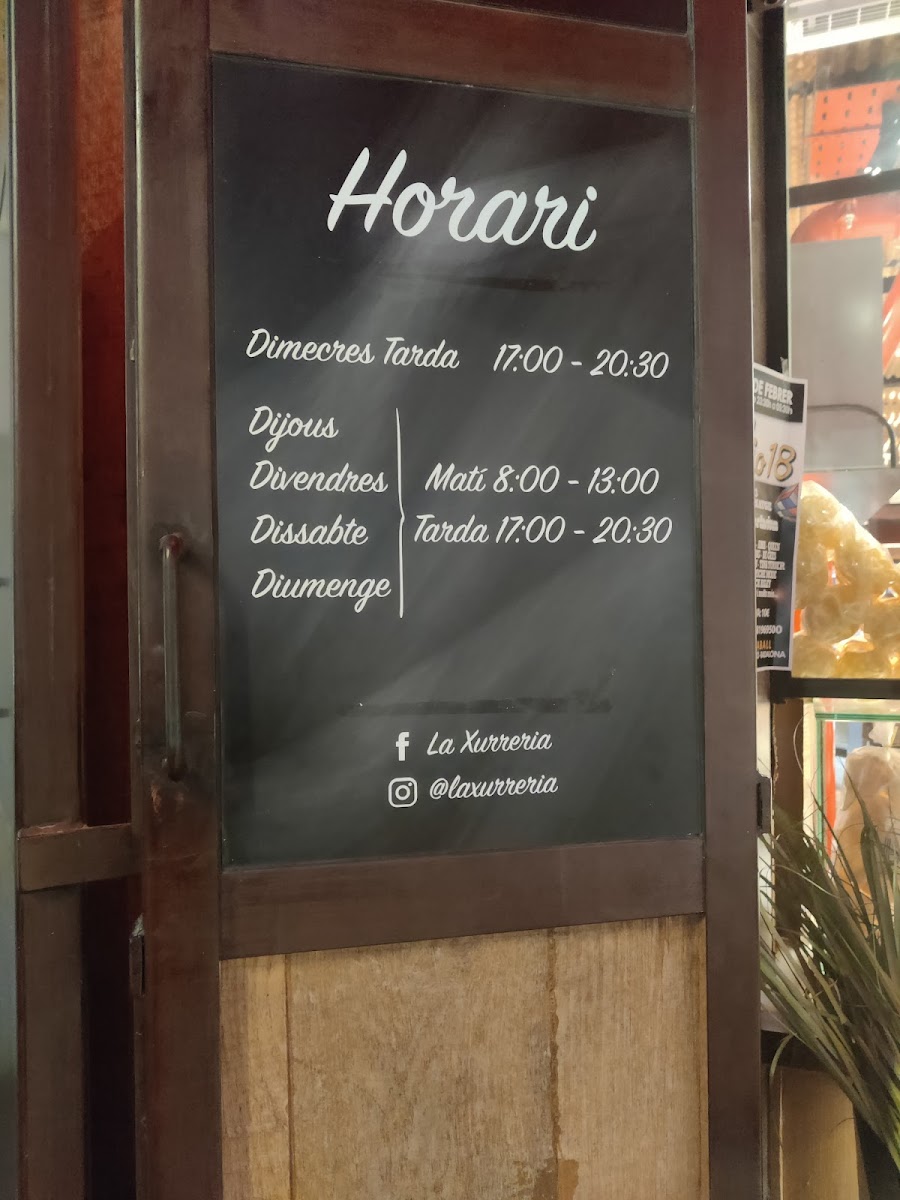 Horari
Dimecres Tarda 17:00 - 20:30
Dijous
Divendres Matí 8:00 - 13:00
Dissabte Tarda 17:00 - 20:30
Diumenge
La Xurreria
@laxurreria
DE FEBRER